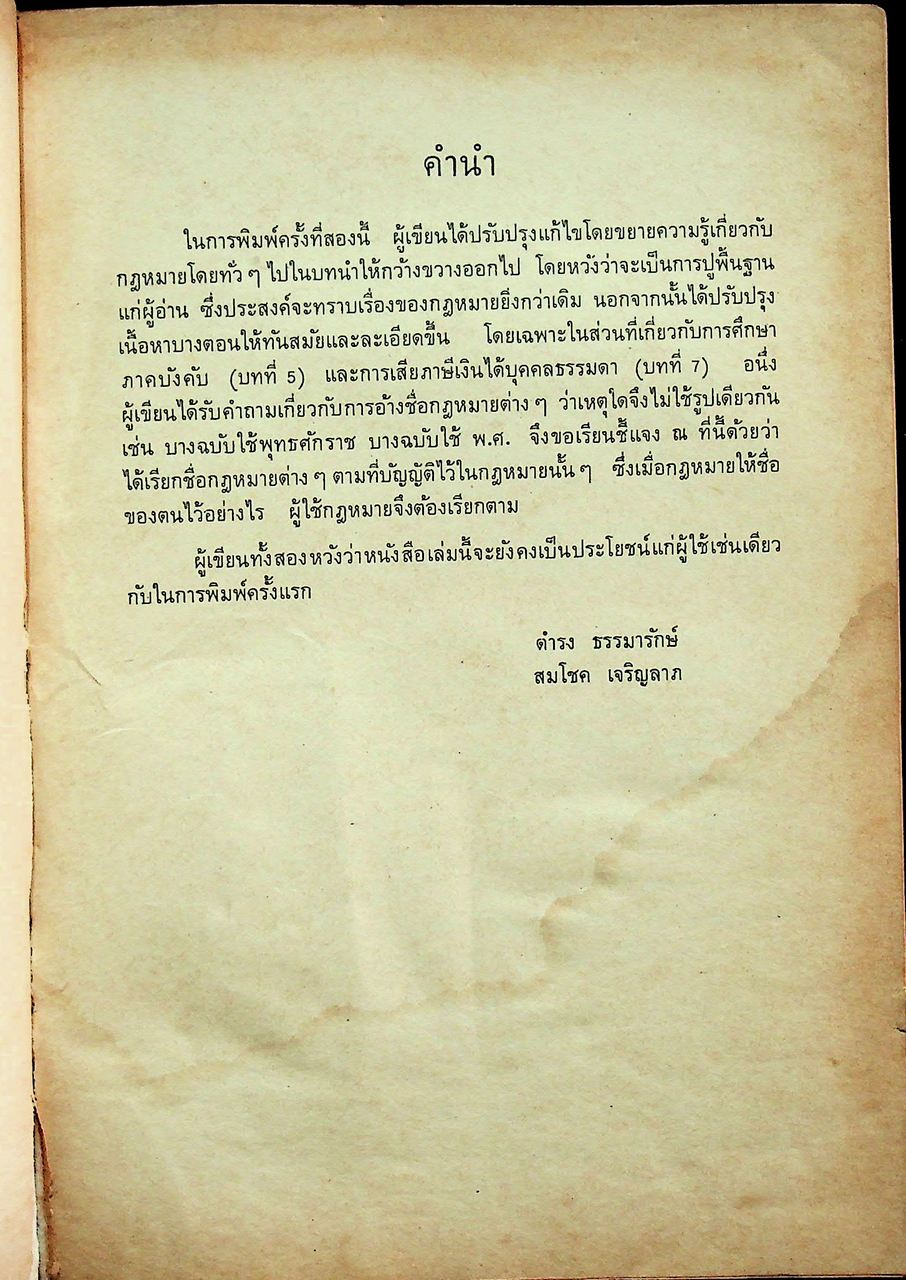 คำนำ
ในการพิมพ์ครั้งที่สองนี้ ผู้เขียนได้ปรับปรุงแก้ไขโดยขยายความรู้เกี่ยวกับ
กฎหมายโดยทั่ว ๆ ไปในบทนำให้กว้างขวางออกไป โดยหวังว่าจะเป็นการปูพื้นฐาน
แก่ผู้อ่าน ซึ่งประสงค์จะทราบเรื่องของกฎหมายยิ่งกว่าเดิม นอกจากนั้นได้ปรับปรุง
เนื้อหาบางตอนให้ทันสมัยและละเอียดขึ้น โดยเฉพาะในส่วนที่เกี่ยวกับการศึกษา
ภาคบังคับ (บทที่ 5) และการเสียภาษีเงินได้บุคคลธรรมดา (บทที่ 7) อนึ่ง
ผู้เขียนได้รับคำถามเกี่ยวกับการอ้างชื่อกฎหมายต่าง ๆ ว่าเหตุใดจึงไม่ใช้รูปเดียวกัน
เช่น บางฉบับใช้พุทธศักราช บางฉบับใช้ พ.ศ. จึงขอเรียนชี้แจง ณ ที่นี้ด้วยว่า
ได้เรียกชื่อกฎหมายต่าง ๆ ตามที่บัญญัติไว้ในกฎหมายนั้น ๆ ซึ่งเมื่อกฎหมายให้ชื่อ
ของตนไว้อย่างไร ผู้ใช้กฎหมายจึงต้องเรียกตาม
ผู้เขียนทั้งสองหวังว่าหนังสือเล่มนี้จะยังคงเป็นประโยชน์แก่ผู้ใช้เช่นเดียว
กับในการพิมพ์ครั้งแรก
ดำรง ธรรมารักษ์
สมโชค เจริญลาภ